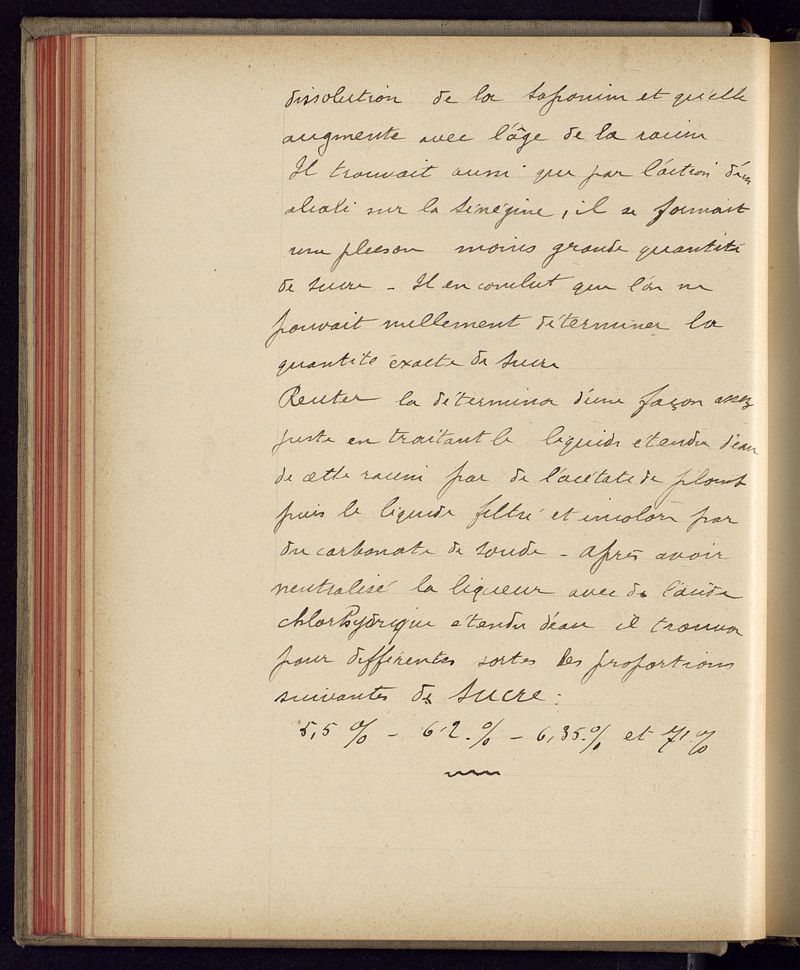 dissolution de la saponine et qu'elle
augmente avec l'âge de la racine
Il trouvait aussi que par l'action d'un
alcali sur la sénégine, il se formait
une moins grande quantité
de sucre - Il en conclut que l'on ne
pouvait nullement déterminer la
quantité exacte de sucre
Reuter la détermina d'une façon assez
juste en traitant le liquide étendu d'eau
de cette racine par de l'acétate de plomb
puis le liquide filtré et incolore par
du carbonate de soude - après avoir
neutralisé la liqueur avec de l'acide
chlorhydrique etendu d'eau il trouva
pour différentes sortes les proportions
suivantes de sucre :
5,5 % - 6,2 % - 6,35 % et 7,1 %